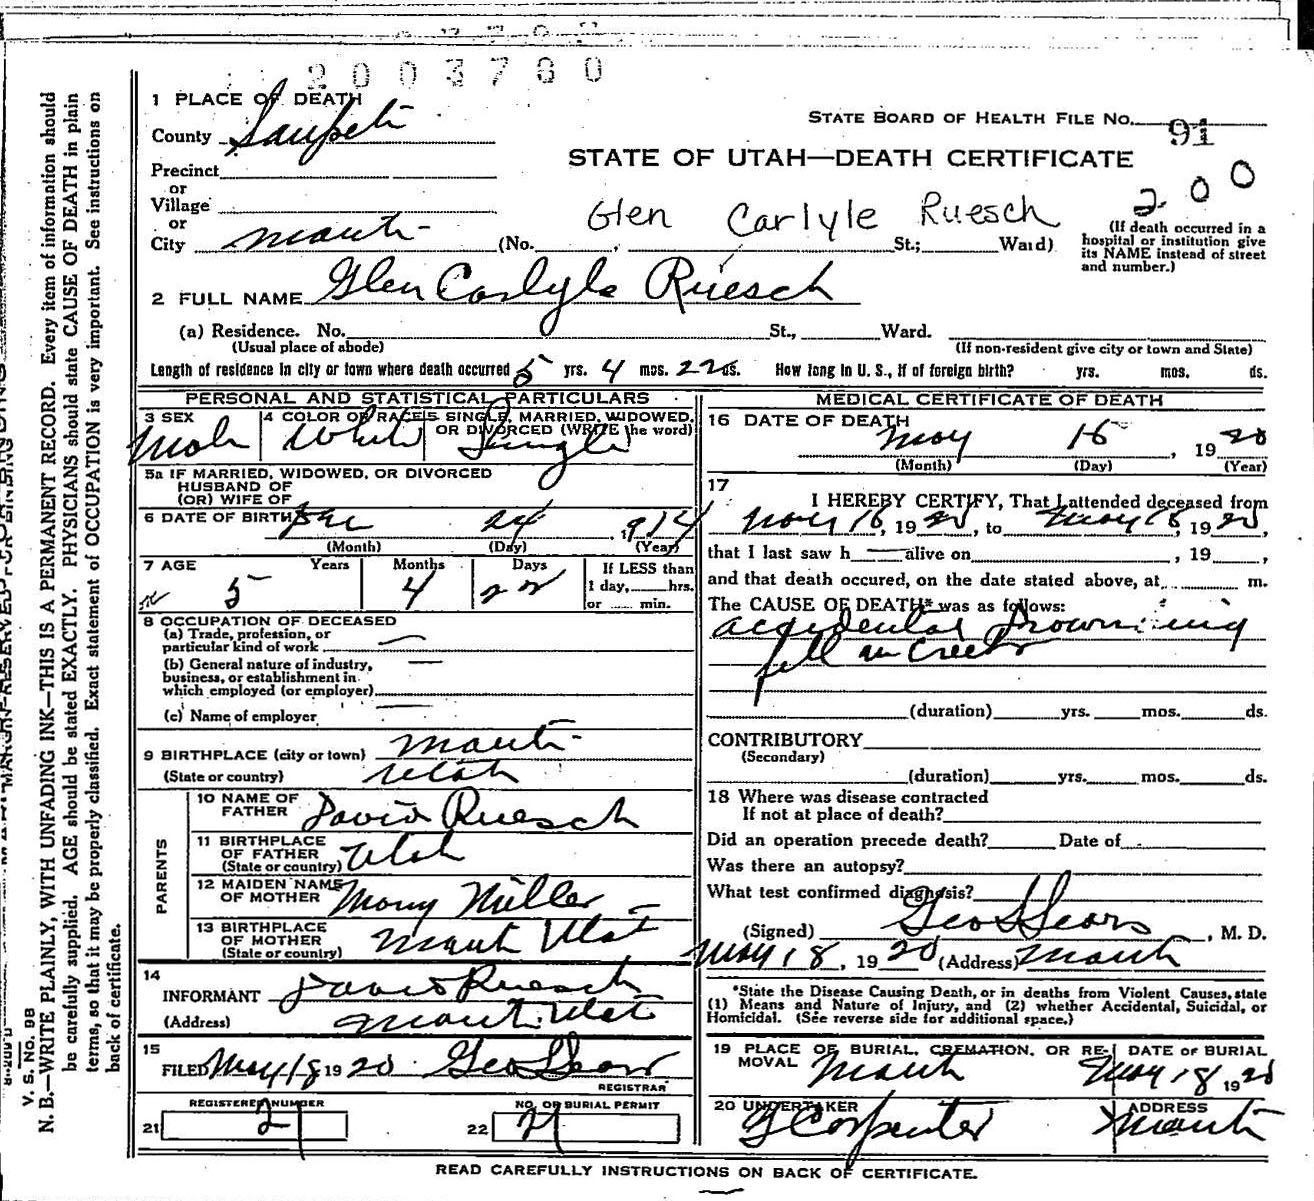 2003780
1 PLACE OF DEATH
County Sanpete
STATE BOARD OF HEALTH FILE No. 91
STATE OF UTAH—DEATH CERTIFICATE
Precinct
or
Village
or
Glen Carlyle Ruesch
200
City Manti (No. St.; Ward)
(If death occurred in a hospital or institution give its NAME instead of street and number.)
2 FULL NAME Glen Carlyle Ruesch
(a) Residence. No. St., Ward.
(Usual place of abode) (If non-resident give city or town and State)
Length of residence in city or town where death occurred 5 yrs. 4 mos. 22 ds. How long in U. S., if of foreign birth? yrs. mos. ds.
PERSONAL AND STATISTICAL PARTICULARS
3 SEX Male
4 COLOR OR RACE White
5 SINGLE, MARRIED, WIDOWED, OR DIVORCED (WRITE the word) Single
5a IF MARRIED, WIDOWED, OR DIVORCED
HUSBAND OF
(OR) WIFE OF
6 DATE OF BIRTH Dec 24, 1914
(Month) (Day) (Year)
7 AGE Years Months Days If LESS than
5 4 22 1 day, hrs.
or min.
8 OCCUPATION OF DECEASED
(a) Trade, profession, or
particular kind of work
(b) General nature of industry,
business, or establishment in
which employed (or employer)
(c) Name of employer
9 BIRTHPLACE (city or town) Manti
(State or country) Utah
PARENTS
10 NAME OF FATHER David Ruesch
11 BIRTHPLACE OF FATHER (State or country) Utah
12 MAIDEN NAME OF MOTHER Mary Miller
13 BIRTHPLACE OF MOTHER (State or country) Manti Utah
14
INFORMANT David Ruesch
(Address) Manti Utah
15
FILED May 18 1920 Geo L Sears
REGISTRAR
REGISTERED NUMBER
21 21
NO. OF BURIAL PERMIT
22 21
MEDICAL CERTIFICATE OF DEATH
16 DATE OF DEATH
May 15, 1920
(Month) (Day) (Year)
17
I HEREBY CERTIFY, That I attended deceased from
May 16, 1920, to May 18, 1920,
that I last saw h alive on , 19 ,
and that death occured, on the date stated above, at m.
The CAUSE OF DEATH* was as follows:
accidental Drowning
fell in Creek
(duration) yrs. mos. ds.
CONTRIBUTORY
(Secondary)
(duration) yrs. mos. ds.
18 Where was disease contracted
If not at place of death?
Did an operation precede death? Date of
Was there an autopsy?
What test confirmed diagnosis?
(Signed) Geo L Sears, M. D.
May 18, 1920 (Address) Manti
*State the Disease Causing Death, or in deaths from Violent Causes, state
(1) Means and Nature of Injury, and (2) whether Accidental, Suicidal, or
Homicidal. (See reverse side for additional space.)
19 PLACE OF BURIAL, CREMATION, OR RE- DATE OF BURIAL
MOVAL Manti May 18 1920
20 UNDERTAKER ADDRESS
Carpenter Manti
READ CAREFULLY INSTRUCTIONS ON BACK OF CERTIFICATE.
V. S. NO. 98
N. B.—WRITE PLAINLY, WITH UNFADING INK—THIS IS A PERMANENT RECORD. Every item of information should
be carefully supplied. AGE should be stated EXACTLY. PHYSICIANS should state CAUSE OF DEATH in plain
terms, so that it may be properly classified. Exact statement of OCCUPATION is very important. See instructions on
back of certificate.